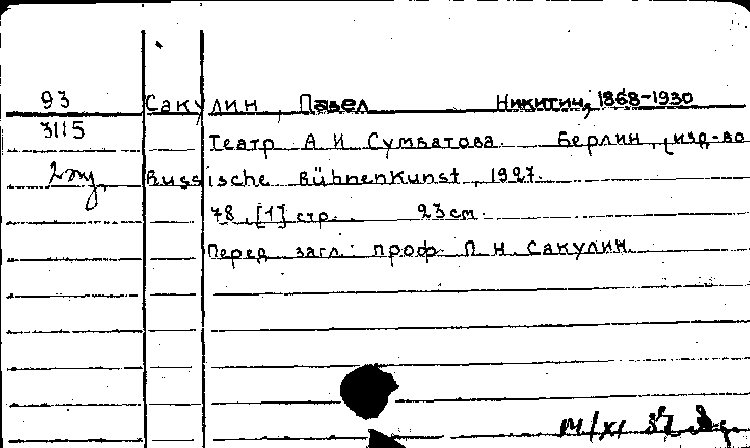 93 Сакулин, Павел Никитин, 1868-1930
3115 Театр А И Сумбатова. Берлин, изд-во
Russische Bühnenkunst, 1927.
78, [1] стр. 23 см.
Перед загл.: проф. П. Н. Сакулин.